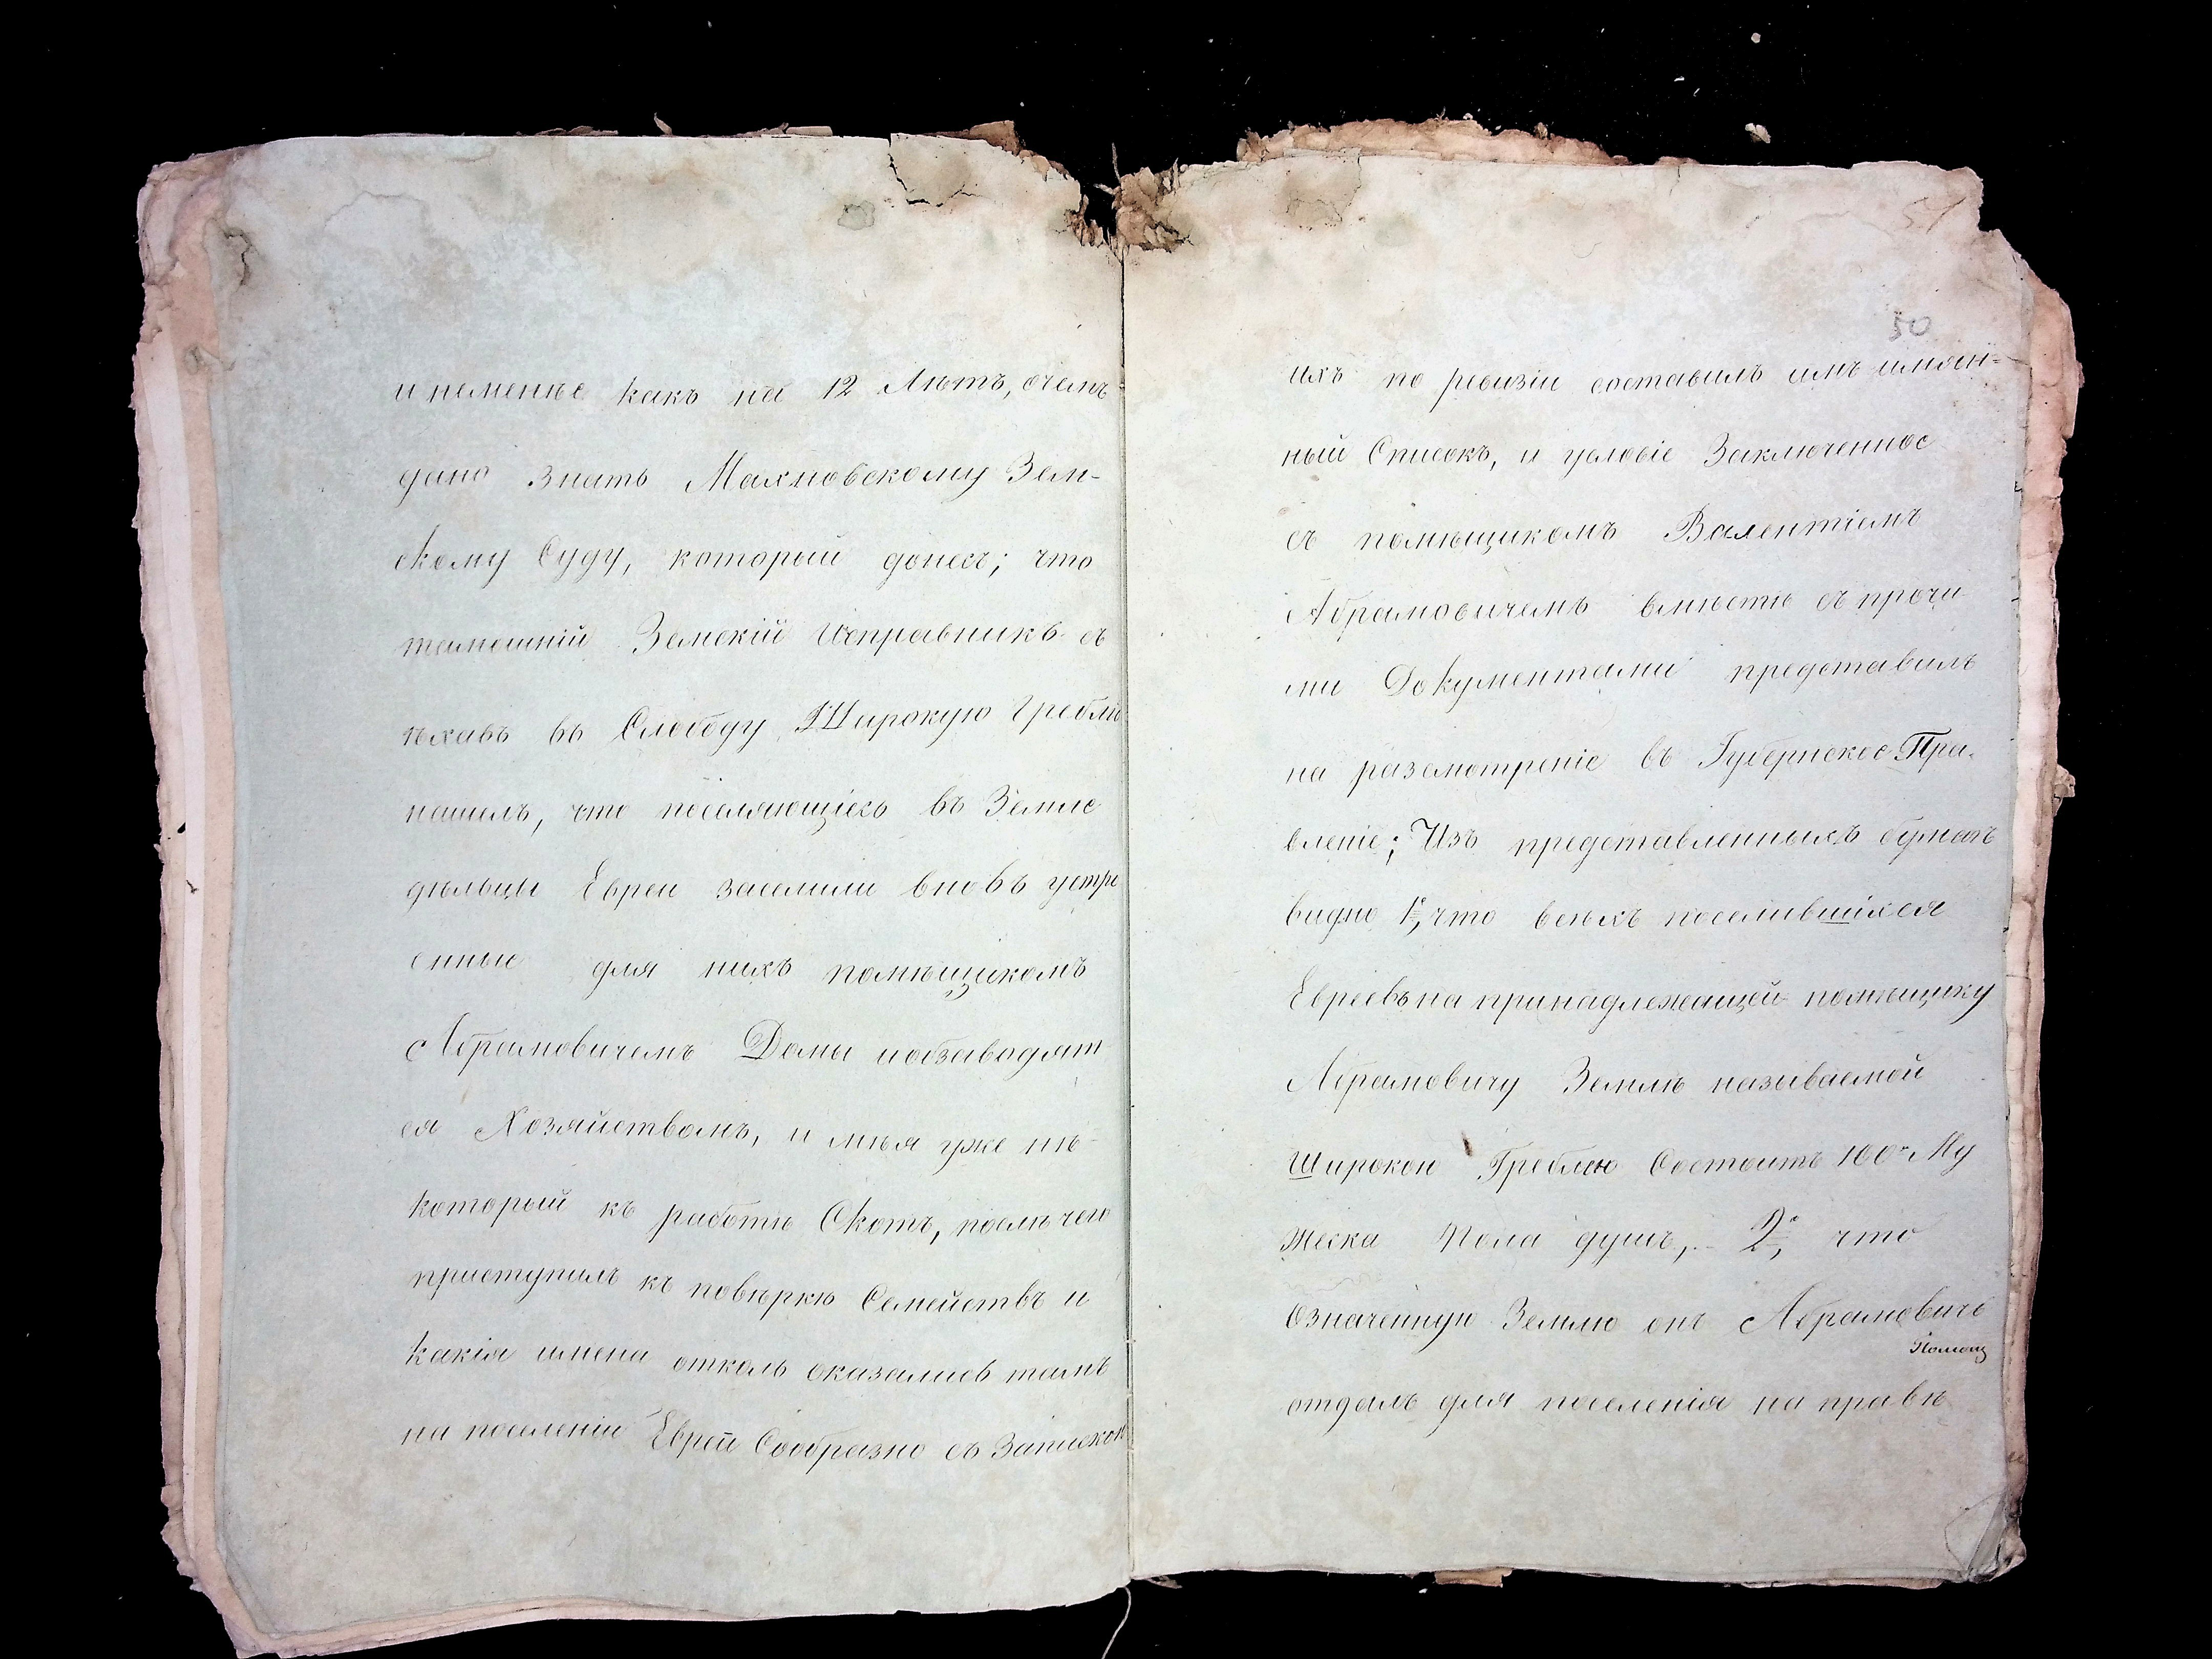 и неменѣе какъ на 12 Лѣтъ, очемъ
дано знать Махновскому Зем-
скому Суду, который донесъ; что
тамошній Земскій Исправникъ съ
ѣхавъ въ Слободу Широкую Греблю
нашелъ, что поселяющіесь въ Земле
дѣльцы Евреи заселили вновь устро
енные для нихъ помѣщикомъ
Абрамовичемъ Домы иобзаводят
ся Хозяйствомъ, и мѣя уже нѣ-
который къ работѣ Скотъ, послѣ чего
приступилъ къ повѣркѣ Семействъ и
какія имена отколь оказались тамъ
на поселеніи Еврей Сообразно съ Запискою
51
50
ихъ по ревизіи составилъ имъ имян-
ный Списокъ, и условіе Заключенное
съ помѣщикомъ Валентіемъ
Абрамовичемъ вмѣстѣ съ прочи
ми Документами представилъ
на разсмотреніе въ Губернское Пра-
вленіе; Изъ представленныхъ бумагъ
видно 1е, что всѣхъ поселившихся
Евреевъ на принадлежащей помѣщику
Абрамовичу Землѣ называемой
Широкою Греблею Состоитъ 100 Му
жеска Пола душъ, 2е, что
Означенную Землю онъ Абрамовичъ
отдалъ для поселенія на правѣ
Помещ